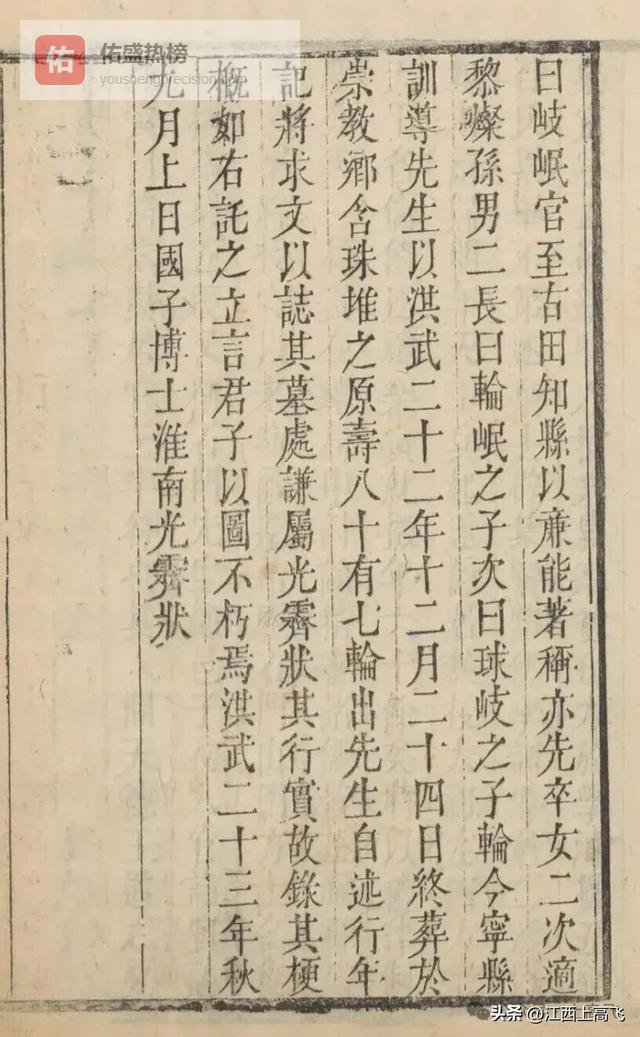 曰岐岷官至古田知縣以亷能著稱亦先卒女二次適
黎燦孫男二長曰輪岷之子次曰球岐之子輪今寧縣
訓導先生以洪武二十二年十二月二十四日終葬於
崇教鄉含珠堆之原壽八十有七輪出先生自述行年
記將求文以誌其墓處謙屬光霽狀其行實故錄其梗
槪如右託之立言君子以圖不朽焉洪武二十三年秋
九月上日國子博士淮南光霽狀
佑
佑盛热榜
youshengprecision.com
头条 @江西上高飞